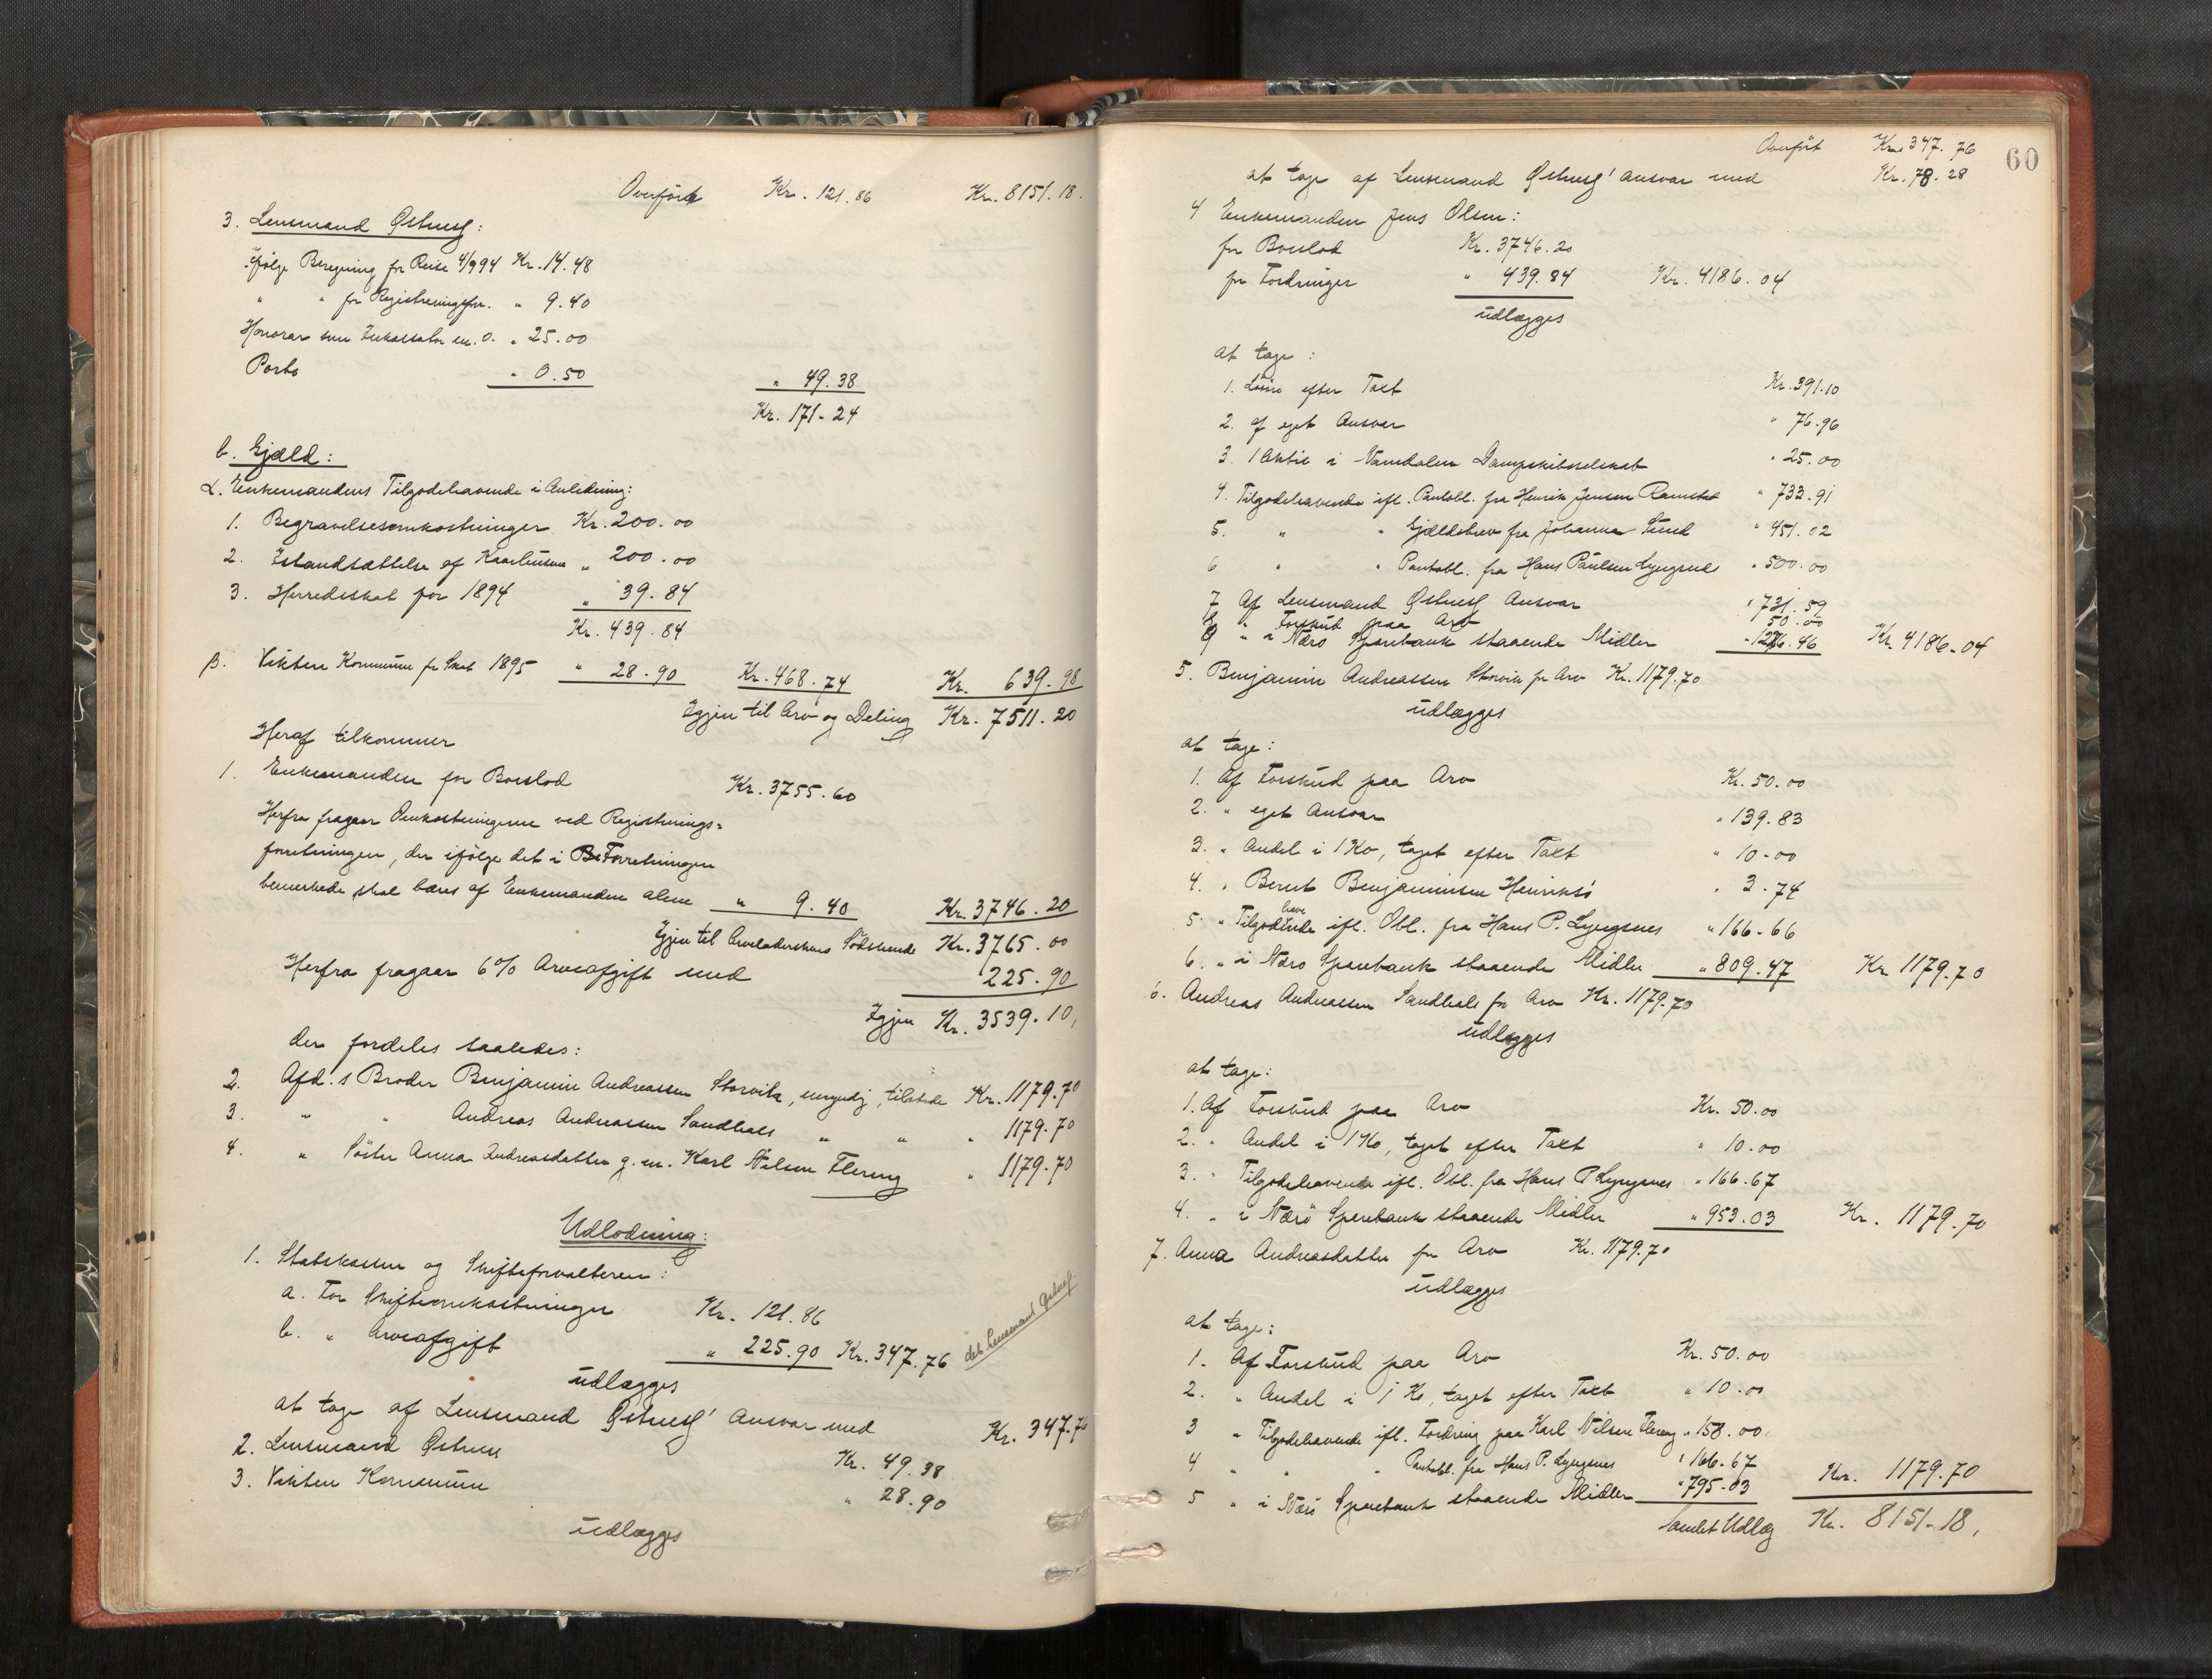 Overført Kr. 121.86 Kr. 8151.18.
3. Lensmand Østnes:
Ifølge Beregning for Reise 4/9 94 Kr. 14.48
" " for Registreringsforr. " 9.40
Honorar som Inkassator m. O. " 25.00
Porto " 0.50 " 49.38
Kr. 171-24
b. Gjæld:
α. Enkemandens Tilgodehavende i Anledning:
1. Begravelsesomkostninger Kr. 200.00
2. Istandsættelse af " 200.00
3. Herredsskat for 1894 " 39.84
Kr. 439.84
β. Vikten Kommune for Skat 1895 " 28.90 Kr. 468.74 Kr. 639.98
Igjen til Arv og Deling Kr. 7511.20
Heraf tilkommer
1. Enkemanden for Boeslod Kr. 3755.60
Herfra fragaar Omkostningerne ved Registrerings-
forretningen, der ifølge det i Forretningen
bemerkede skal bæres af Enkemanden alene " 9.40 Kr. 3746.20
Igjen til Arveladerskens Sødskende Kr. 3765.00
Herfra fragaar 6% Arveafgift med 225.90
Igjen Kr. 3539.10,
der fordeles saaledes:
2. Afd.s Broder Benjamin Andreassen Storvik, myndig, tilstede Kr. 1179.70
3. " " Andreas Andreassen Sandhals " " " 1179.70
4. " Søster Anna Andreasdatter g. m. Karl Nilsen Flereng " 1179.70
Udlodning:
1. Statskassen og Skifteforvalteren:
a. For Skifteomkostninger Kr. 121.86
b. " Arveafgift " 225.90 Kr. 347.76
deb. Lensmand Østnes.
udlægges
at tage af Lensmand Østnes' Ansvar med Kr. 347.76
2. Lensmand Østnes Kr. 49.38
3. Vikten Kommune " 28.90
udlægges
60
Overført Kr. 347.76
at tage af Lensmand Østnes' Ansvar med Kr. 78.28
4 Enkemanden Jens Olsen:
for Boeslod Kr. 3746.20
for Fordringer " 439.84 Kr. 4186.04
udlægges
at tage:
1. Løsøre efter Taxt Kr. 391.10
2. af eget Ansvar " 76.96
3. 1 Aktie i Namdalen Dampskibsselskab " 25.00
4. Tilgodehavende ifl. Pantobl. fra Henrik Jensen Ramstad " 733.91
5. " " Gjældsbrev fra Johannes Sund " 451.02
6 " " Pantobl. fra Hans Paulsen Lyngsnes " 500.00
7 Af Lensmand Østnes Ansvar " 731.59
8 " Forskud paa Arv 50.00
9 " i Nærø Sparebank staaende Midler " 1226.46 Kr. 4186-04
5. Benjamin Andreassen Storvik for Arv Kr. 1179.70
udlægges
at tage:
1. Af Forskud paa Arv Kr. 50.00
2. " eget Ansvar " 139.83
3. " Andel i 1 Ko, taget efter Taxt " 10-00
4. " Bernt Benjaminsen Henriksø " 3.74
5 " Tilgodehavende ifl. Obl. fra Hans P. Lyngsnes " 166-66
6. " i Nærø Sparebank staaende Midler " 809.47 Kr 1179.70
6. Andreas Andreassen Sandhals for Arv Kr. 1179.70
udlægges
at tage:
1. Af Forskud paa Arv Kr. 50.00
2. " Andel i 1 Ko, taget efter Taxt " 10.00
3. " Tilgodehavende ifl. Obl. fra Hans P Lyngsnes " 166.67
4. " i Nærø Sparebank staaende Midler " 953.03 Kr. 1179.70
7. Anna Andreasdatter for Arv Kr. 1179.70
udlægges
at tage:
1. Af Forskud paa Arv Kr. 50.00
2. " Andel i 1 Ko, taget efter Taxt " 10.00
3 " Tilgodehavende ifl. Fordring paa Karl Nilsen Flereng " 158.00
4 " " " Pantobl. fra Hans P. Lyngsnes " 166.67
5 " i Nærø Sparebank staaende Midler " 795-03 Kr. 1179.70
Samlet Udlæg Kr. 8151-18,